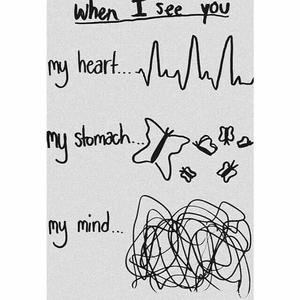 When I see you
my heart....
my stomach...
my mind...